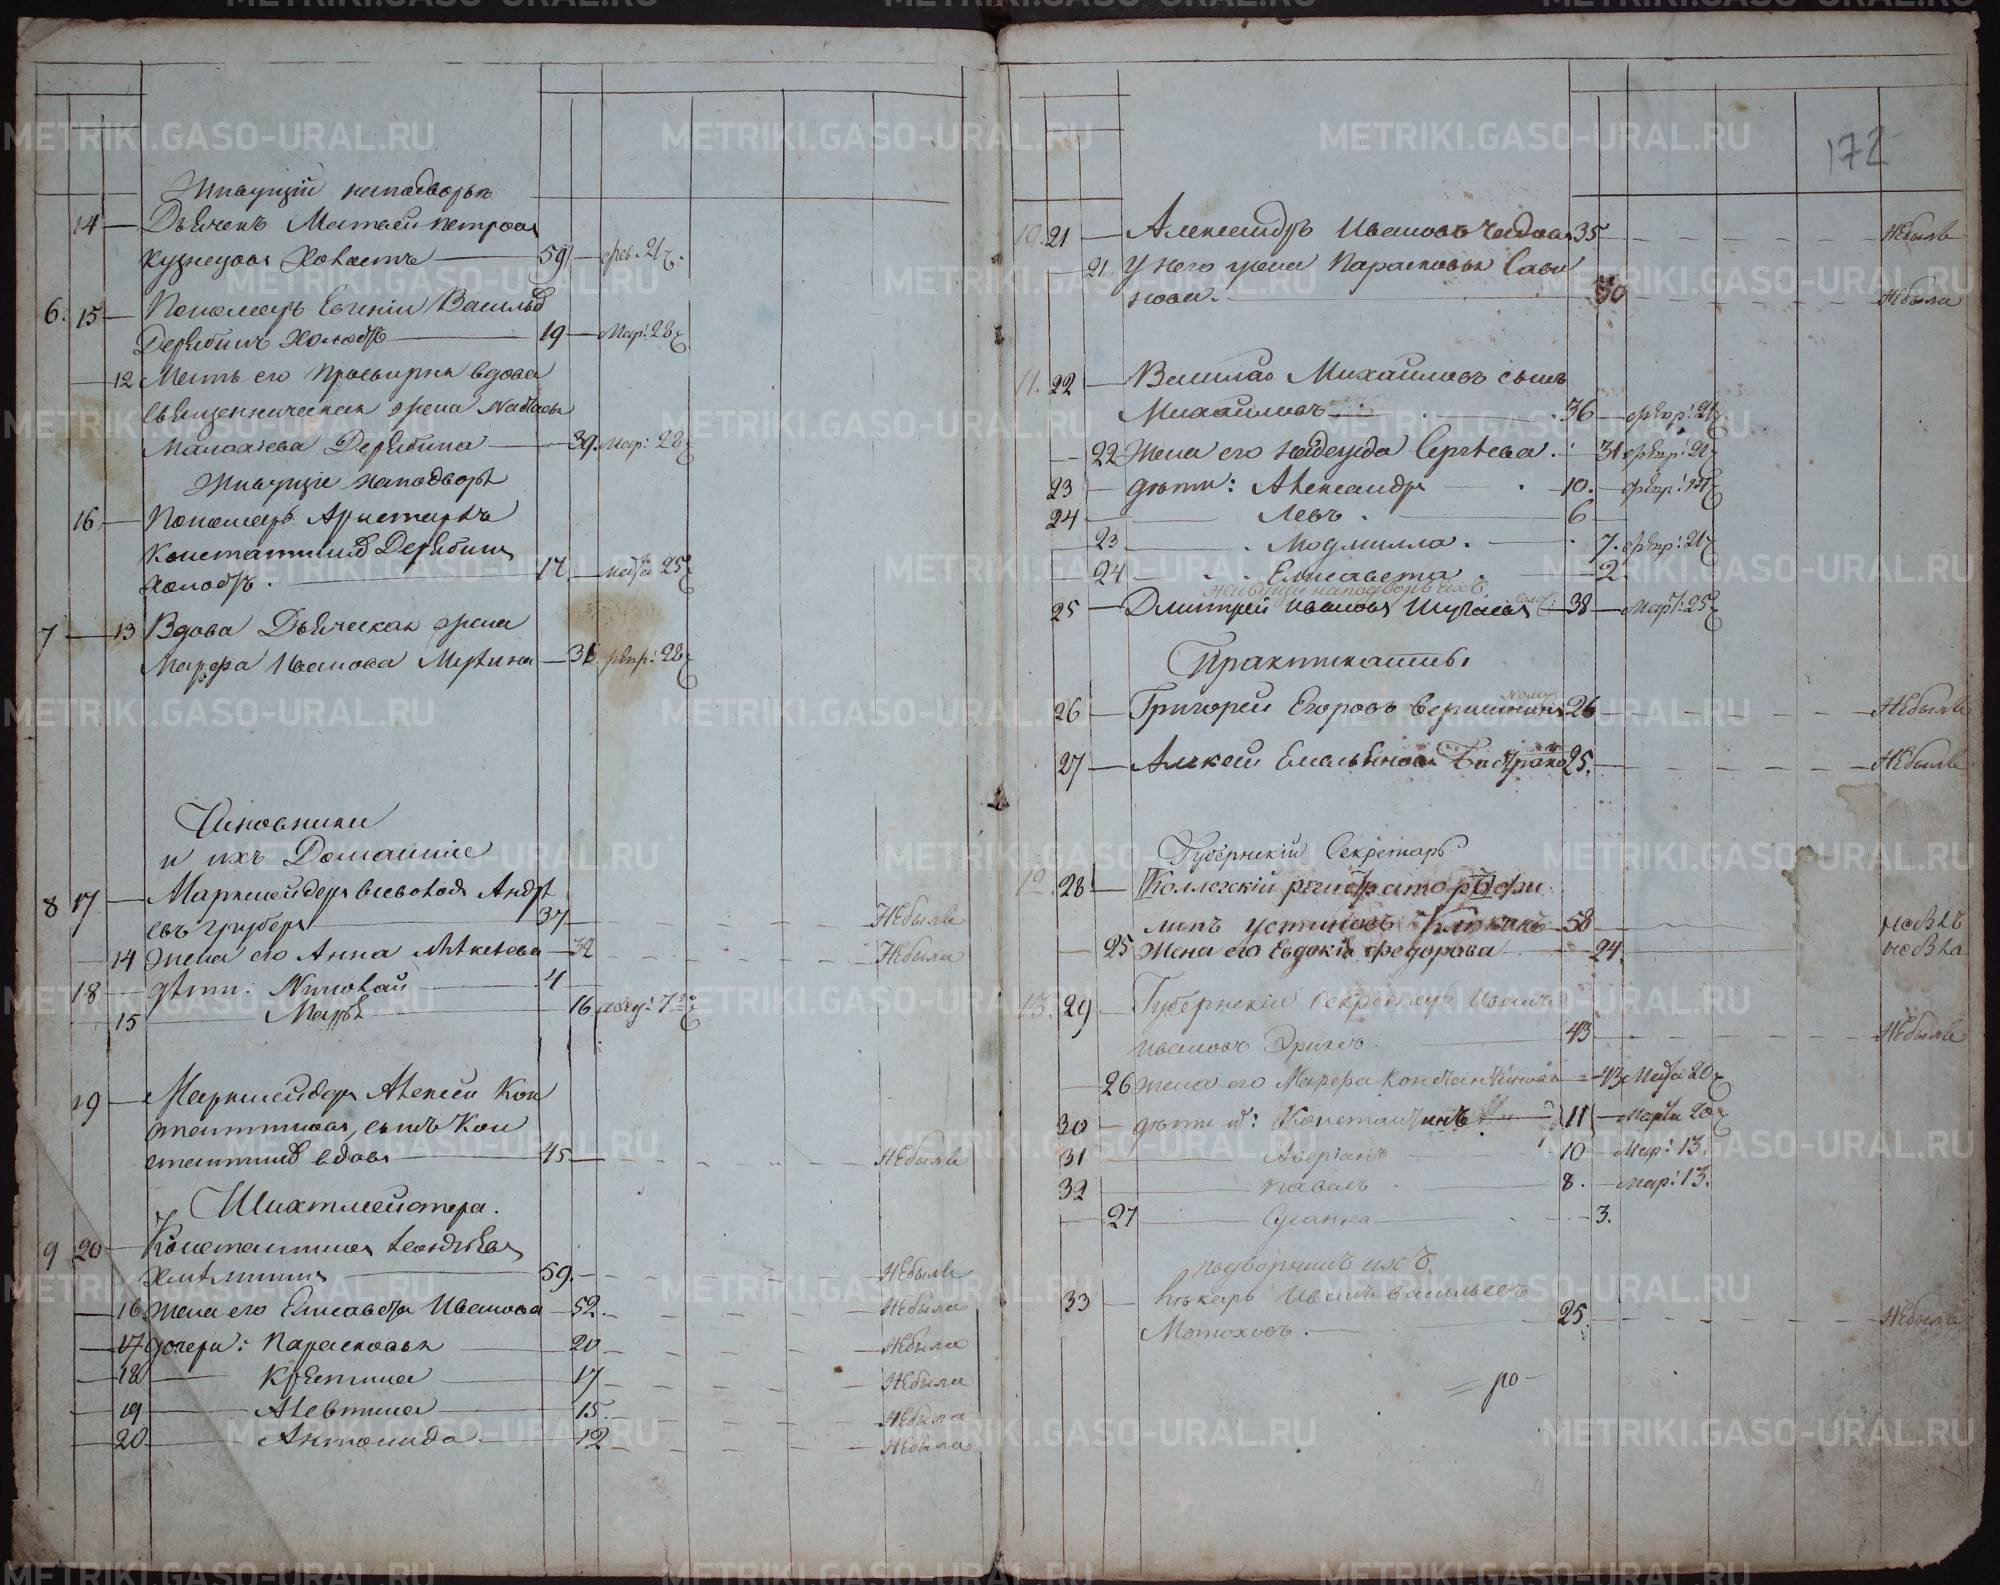 Живущій наподворьѣ
14 — Дьячекъ Матвей Петровъ
Кузнецовъ Холостъ — 59 — фев. 21
6. 15 — Пономарь Евгеній Васильев
Дерябинъ Холостъ — 19 — Мар: 28
12 Мать его Просвирня вдова
священническая жена
Малахіева Дерябина — 39. мар: 28
Живущіе наподворьѣ
16 — Пономарь Аристархъ
Константинов Дерябинъ
Холостъ. — 17 — 25
7 — 13 Вдова Дьяческая жена
Марфа Иванова — 31 февр: 28
Чиновники
и ихъ Домашніе
8 17 — Маркшейдеръ Всеволодъ Андре
евъ Груберъ — 37 — Небылъ
14 жена его Анна Алексеева — 32 Небыла
18 — дѣти: Николай — 4
15 — Марья — 16
19 — Маркшейдеръ Алексей Кон
стантиновъ, сынъ Кон
стантинов вдовъ — 45 — Небылъ
Шихтмейстера.
9 20 — Константинъ
59. — Небылъ
16 жена его Елисавета Иванова — 52. Небыла
17 дочери: Парасковья — 20 Небыла
18 — Кристина — 17 Небыла
19 — Алевтина — 15. Небыла
20 — Антонида — 12 Небыла
172
10. 21 — Александръ Ивановъ 35 Небылъ
21 У него жена Парасковья Сави
нова. — 30 Небыла
11. 22 — Василій Михайловъ сынъ
Михайловъ — 36 — февр: 21
22 Жена его Надежда Сергѣева. 31 февр: 21
23 — дѣти: Александръ — 10. — февр: 21
24 — Левъ. — 6
23 — Людмилла. — 7. февр: 21
24 — Елисавета — 2.
Живущій наподворьѣ ихъ
25 — Дмитрей Ивановъ — 38 — Март: 25
Практиканты.
26 — Григорей Егоровъ Вершининъ 26 Небылъ
27 — Алексей Емельяновъ 25. Небылъ
Губернскій Секретарь
12. 28 — Коллежскій регистраторъ Фи
липъ Устиновъ — 58
25 Жена его Евдокія Федорова — 24.
13. 29 — Губернскій Секретарь Иванъ
Ивановъ — 43 Небылъ
26 жена его Марфа Константинова — 43 Марта 20
30 — дѣти их: Константинъ 11 — Марта 20
31 — Аверіанъ — 10 — Мар: 13.
32 — Павелъ — 8. — мар: 13.
27 — Сусанна — 3.
подворникъ ихъ
33 — Лѣкарь Иванъ Васильевъ
Мотоховъ. — 25. Небылъ